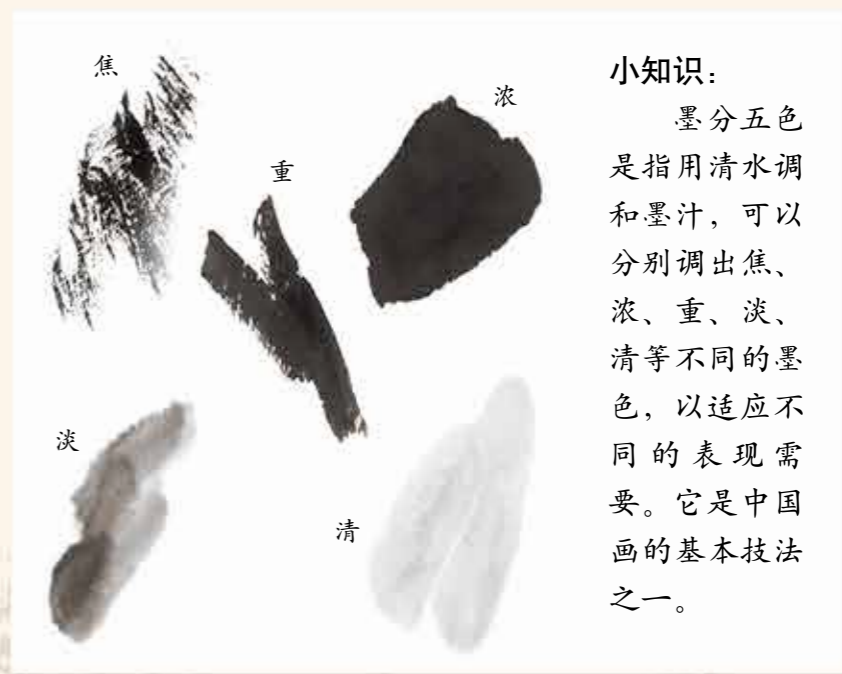 焦
浓
重
淡
清
小知识：
墨分五色
是指用清水调
和墨汁，可以
分别调出焦、
浓、重、淡、
清等不同的墨
色，以适应不
同的表现需
要。它是中国
画的基本技法
之一。